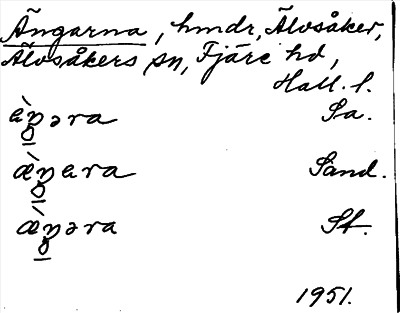 Ängarna, hmdr, Älvsåker,
Älvsåkers sn, Fjäre hd,
Hall. l.
èŋəra Sa.
æ̀ŋɐra Sand.
æ̀ŋəra St.
1951.